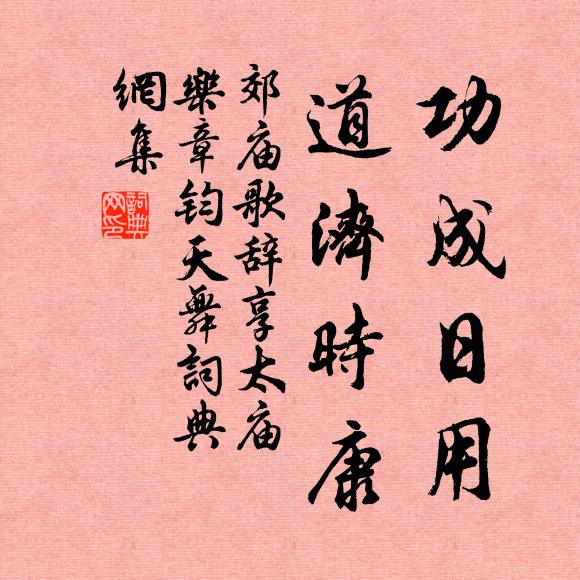 功成日用
道濟時康
郊庙歌辞享太庙
樂章钧天舞詞典
網集
詞典
网印